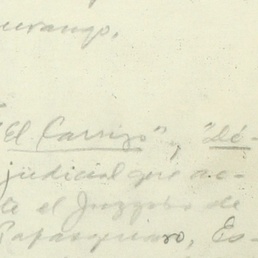 Durango.
"El Carrizo", "Dé-
judicial que ac-
te el Juzgado de
Papasquiaro, Es-